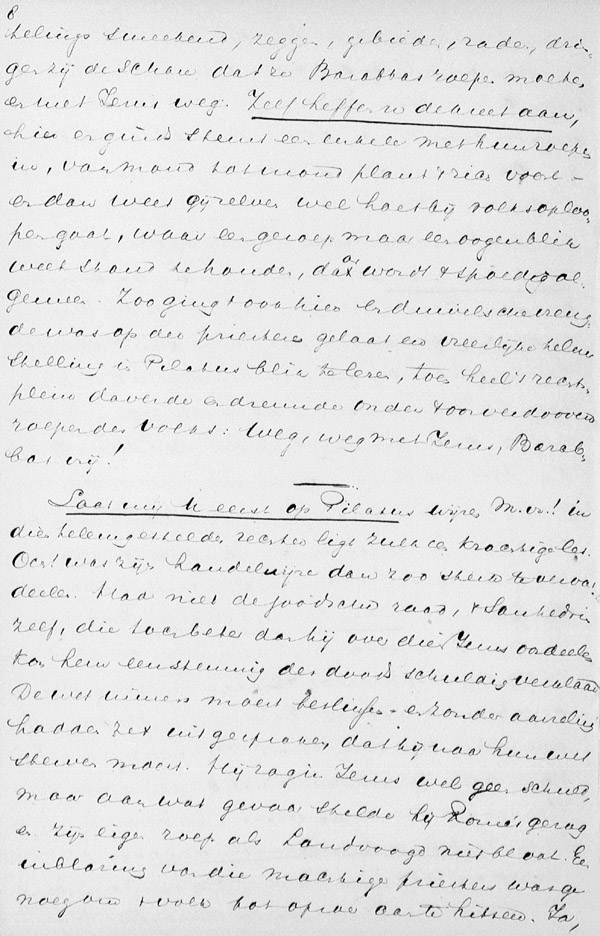 8
smeekend, zeggen, gebieden, raden, drin-
gen zij de Schare dat ze Barabbas roepen moeten
en met Jezus weg. Zelf heffen ze de kreet aan,
hier en ginds stemt een enkele met hun roepen
in, van mond tot mond plant 't zich voort –
en dan weet gij zelven wel hoe 't bij volksoploo-
pen gaat, waar een geroep maar een oogenblik
weet stand te houden, daar wordt 't spoedig al-
gemeen. Zoo ging 't ook hier en duivelsche vreug-
de was op der priesteren gelaat en vreeselijke teleur-
stelling in Pilatus blik te lezen, toen heel 't rechts-
plein daverde en dreunde onder 't oorverdoovend
roepen des volks: Weg, weg met Jezus, Barab-
bas vrij!
Laat mij U eerst op Pilatus wijzen M.vr.! in
dien teleurgestelden rechter ligt zulk een krachtige les.
Och was zijn handelwijze dan zoo sterk te veroor-
deelen. Had niet de Joodsche raad, 't Sanhedrin
zelf, die toch beter dan hij over dien Jezus oordeelen
kon hem eenstemmig des doods schuldig verklaard
De wet immers moest beslissen en zonder aarzeling
hadden ze 't uitgesproken, dat hij naar hun wet
sterven moest. Hij zag in Jezus wel geen schuld,
maar aan wat gevaar stelde hij Rome's gezag
en zijn eigen roep als Landvoogd niet bloot. Een
inblazing van die machtige priesters was ge-
noeg om 't volk tot oproer aan te hitsen. Ja,